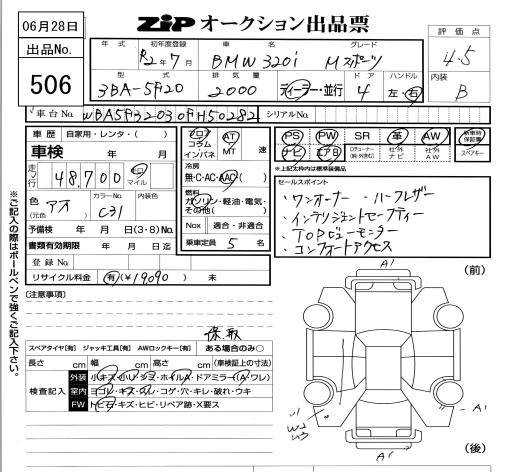 06月28日
ZIP オークション出品票
出品No.
506
年式 初年度登録 車名 グレード
R2年7月 BMW 320i Mスポーツ
型式 排気量 ドア ハンドル
3BA-5F20 2000 ディーラー・並行 4 左・右
評価点
4.5
内装
B
車台No. WBA5F32030FH50282 シリアルNo.
車歴 自家用・レンタ・( )
車検 年 月
走行 48,700 キロ マイル
色(元色) アオ カラーNo. C31 内装色
予備検 年 月 日(3・8)No.
書類有効期限 年 月 日迄
登録No.
リサイクル料金 有(¥19090) 未
フロア コラム インパネ AT MT 速
冷房
無・C・AC・AAC
燃料
ガソリン・軽油・電気・その他( )
Nox 適合・非適合
乗車定員 5 名
PS PW SR 革 AW 新車時保証書
ナビ エアB 社外ナビ 社外AW スペアキー
*上記太枠内は標準装備品
セールスポイント
・ワンオーナー ・ハーフレザー
・インテリジェントセーフティー
・TOPビューモニター
・コンフォートアクセス
※ご記入の際はボールペンで強くご記入下さい。
(注意事項)
保、取
スペアタイヤ[有] ジャッキ工具[有] AWロックキー[有] ある場合のみ○
長さ cm 幅 cm 高さ cm (車検証上の寸法)
検査記入
外装 小キズ・小ハリ・シミ・ホイルA・ドアミラー(A・ワレ)
室内 ヨゴレ・キズ・スレ・コゲ・穴・キレ・破れ・ウキ
FW トビ石・キズ・ヒビ・リペア跡・X要ス
A1
(前)
A1
A1
(後)